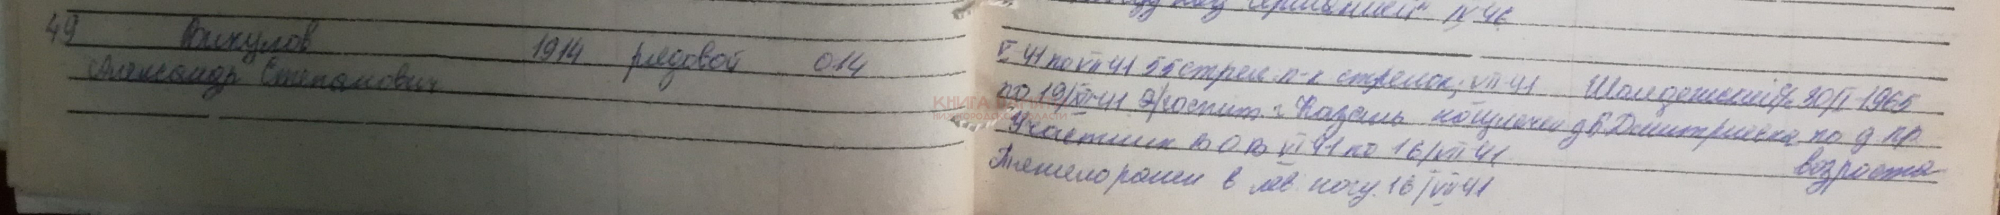 49 Викулов 1914 рядовой 014
Александр Степанович
№ 46
V-41 по VII 41 55 стрел. п-к стрелок; VII-41 30/II-1965
по 19/XI-41 Э/госпит. г. Казань д Б Дмитриевка по д пр
Участник ВОВ VI 41 по 16/VII 41 возраста
Тяжело ранен в лев. ногу. 16/VII 41
КНИГА ПАМЯТИ
НИЖЕГОРОДСКОЙ ОБЛАСТИ